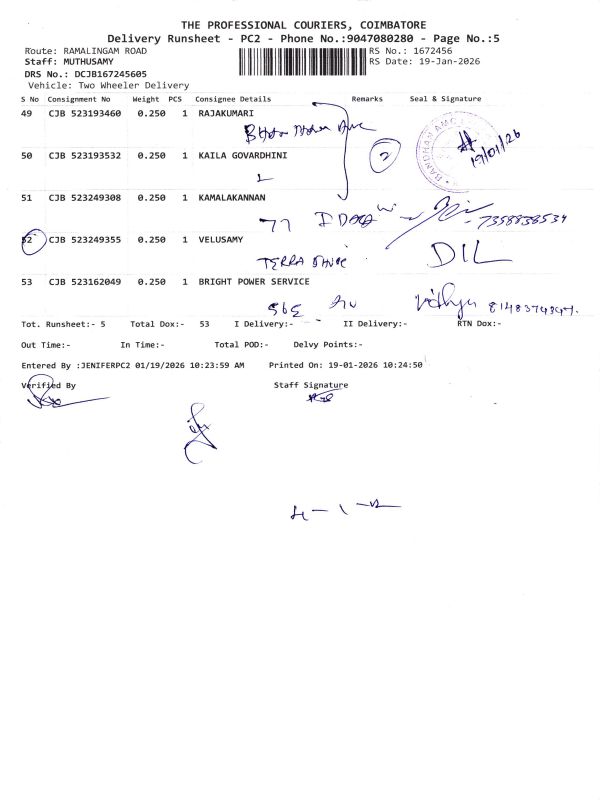 THE PROFESSIONAL COURIERS, COIMBATORE
Delivery Runsheet - PC2 - Phone No.:9047080280 - Page No.:5
Route: RAMALINGAM ROAD RS No.: 1672456
Staff: MUTHUSAMY RS Date: 19-Jan-2026
DRS No.: DCJB167245605
Vehicle: Two Wheeler Delivery
S No Consignment No Weight PCS Consignee Details Remarks Seal & Signature
49 CJB 523193460 0.250 1 RAJAKUMARI
19/01/26
50 CJB 523193532 0.250 1 KAILA GOVARDHINI
2
51 CJB 523249308 0.250 1 KAMALAKANNAN
77 7358838534
52 CJB 523249355 0.250 1 VELUSAMY
TERRA DIL
53 CJB 523162049 0.250 1 BRIGHT POWER SERVICE
Tot. Runsheet:- 5 Total Dox:- 53 I Delivery:- II Delivery:- RTN Dox:-
Out Time:- In Time:- Total POD:- Delvy Points:-
Entered By :JENIFERPC2 01/19/2026 10:23:59 AM Printed On: 19-01-2026 10:24:50
Verified By Staff Signature